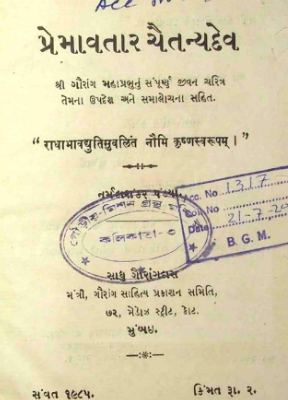 પ્રેમાવતાર ચૈતન્યદેવ
શ્રી ગૌરાંગ મહાપ્રભુનું સંપૂર્ણ જીવન ચરિત્ર
તેમના ઉપદેશ અને સમાલોચના સહિત.
"राधाभावद्युतिसुवलितं नौमि कृष्णस्वरूपम् ।"
નર્મદાશંકર પંડ્યા
Acc. No 1317
No.
Date 21-7-20
B. G. M.
કলিকাতা-৩
સાધુ ગૌરાંગદાસ
મંત્રી, ગૌરાંગ સાહિત્ય પ્રકાશન સમિતિ,
૭૨, મેડોઝ સ્ટ્રીટ, કોટ.
મુંબઇ.
સંવત ૧૯૮૫.
કિંમત રૂા. ૨.